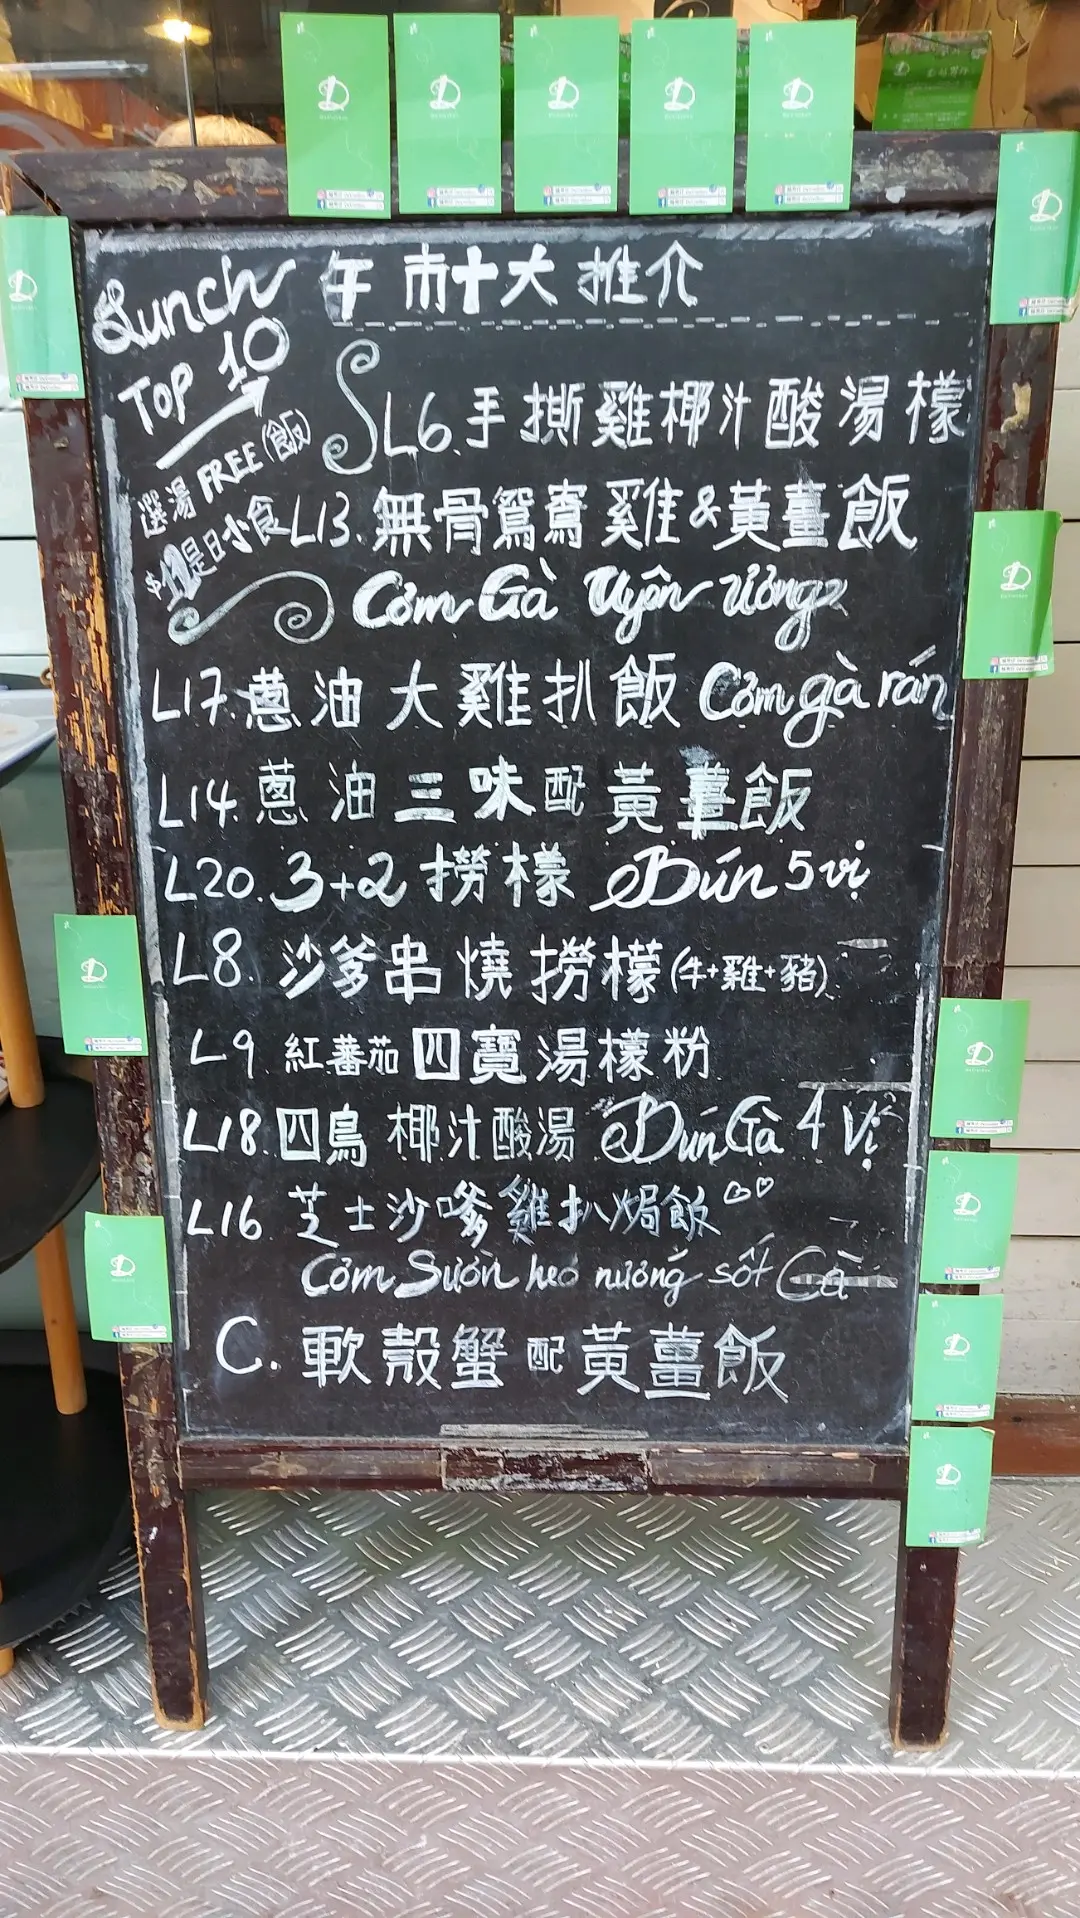 Lunch
TOP 10
午市十大推介
選湯 FREE (飯)
是日小食
L6.手撕雞椰汁酸湯檬
L13.無骨鴛鴦雞&黃薑飯
Cơm Gà Uyên Ương
L17.蔥油大雞扒飯 Cơm gà rán
L14.蔥油三味配黃薑飯
L20.3+2撈檬 Bún 5 vị
L8.沙爹串燒撈檬(牛+雞+豬)
L9 紅蕃茄四寶湯檬粉
L18.四鳥椰汁酸湯 Bún Gà 4 Vị
L16 芝士沙嗲雞扒焗飯
Cơm Sườn heo nướng sốt Cà
C.軟殼蟹配黃薑飯